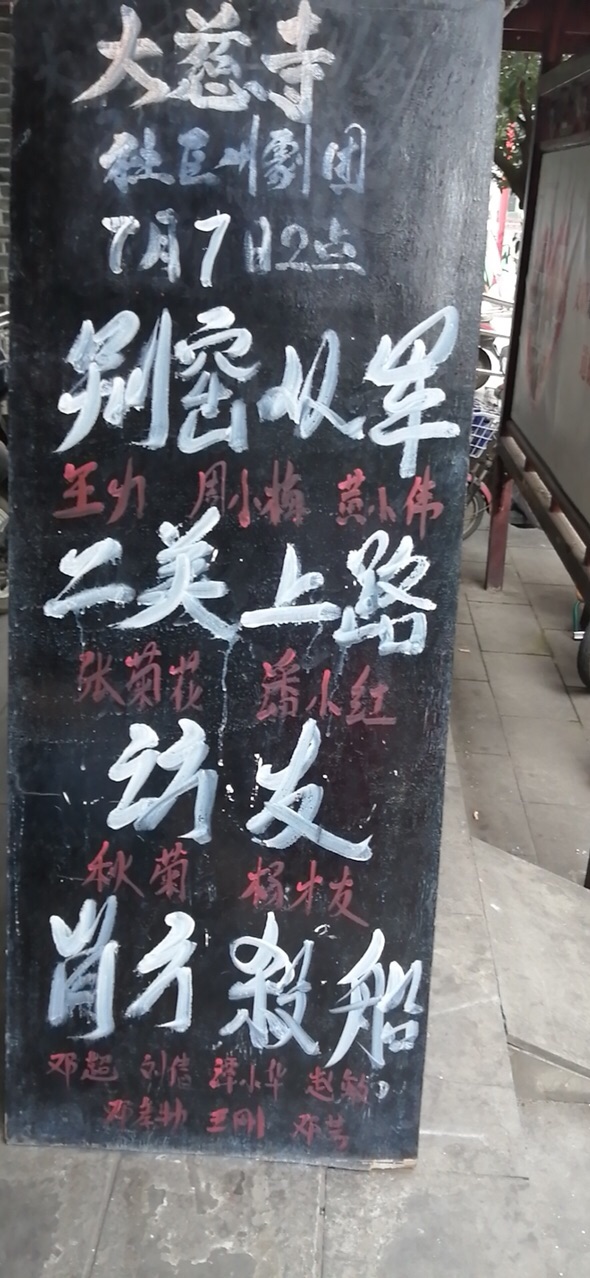 大慈寺
社区川剧团
7月7日2点
别窑从军
王力 周小梅 黄小伟
二美上路
张菊花 潘小红
访友
秋菊 杨才友
肖方殺船
邓超 刘信 泽小华 赵敏
王刚